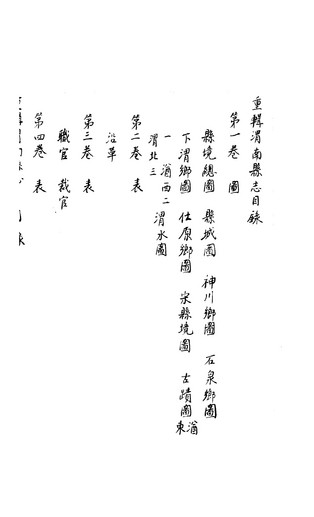 重輯渭南縣志目錄
第一卷　圖
縣境總圖　縣城圖　神川鄉圖　石泉鄉圖
下渭鄉圖　仕原鄉圖　宋縣境圖　古蹟圖湭東
一湭西二
渭北三　渭水圖
第二卷　表
沿革
第三卷　表
職官　裁官
第四卷　表